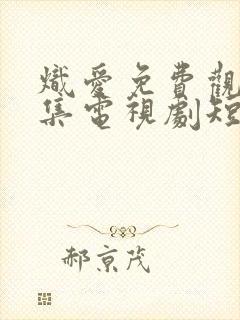 熾愛免費觀
集電視劇短
郝京茂